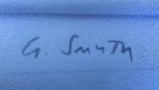 G. Smith.